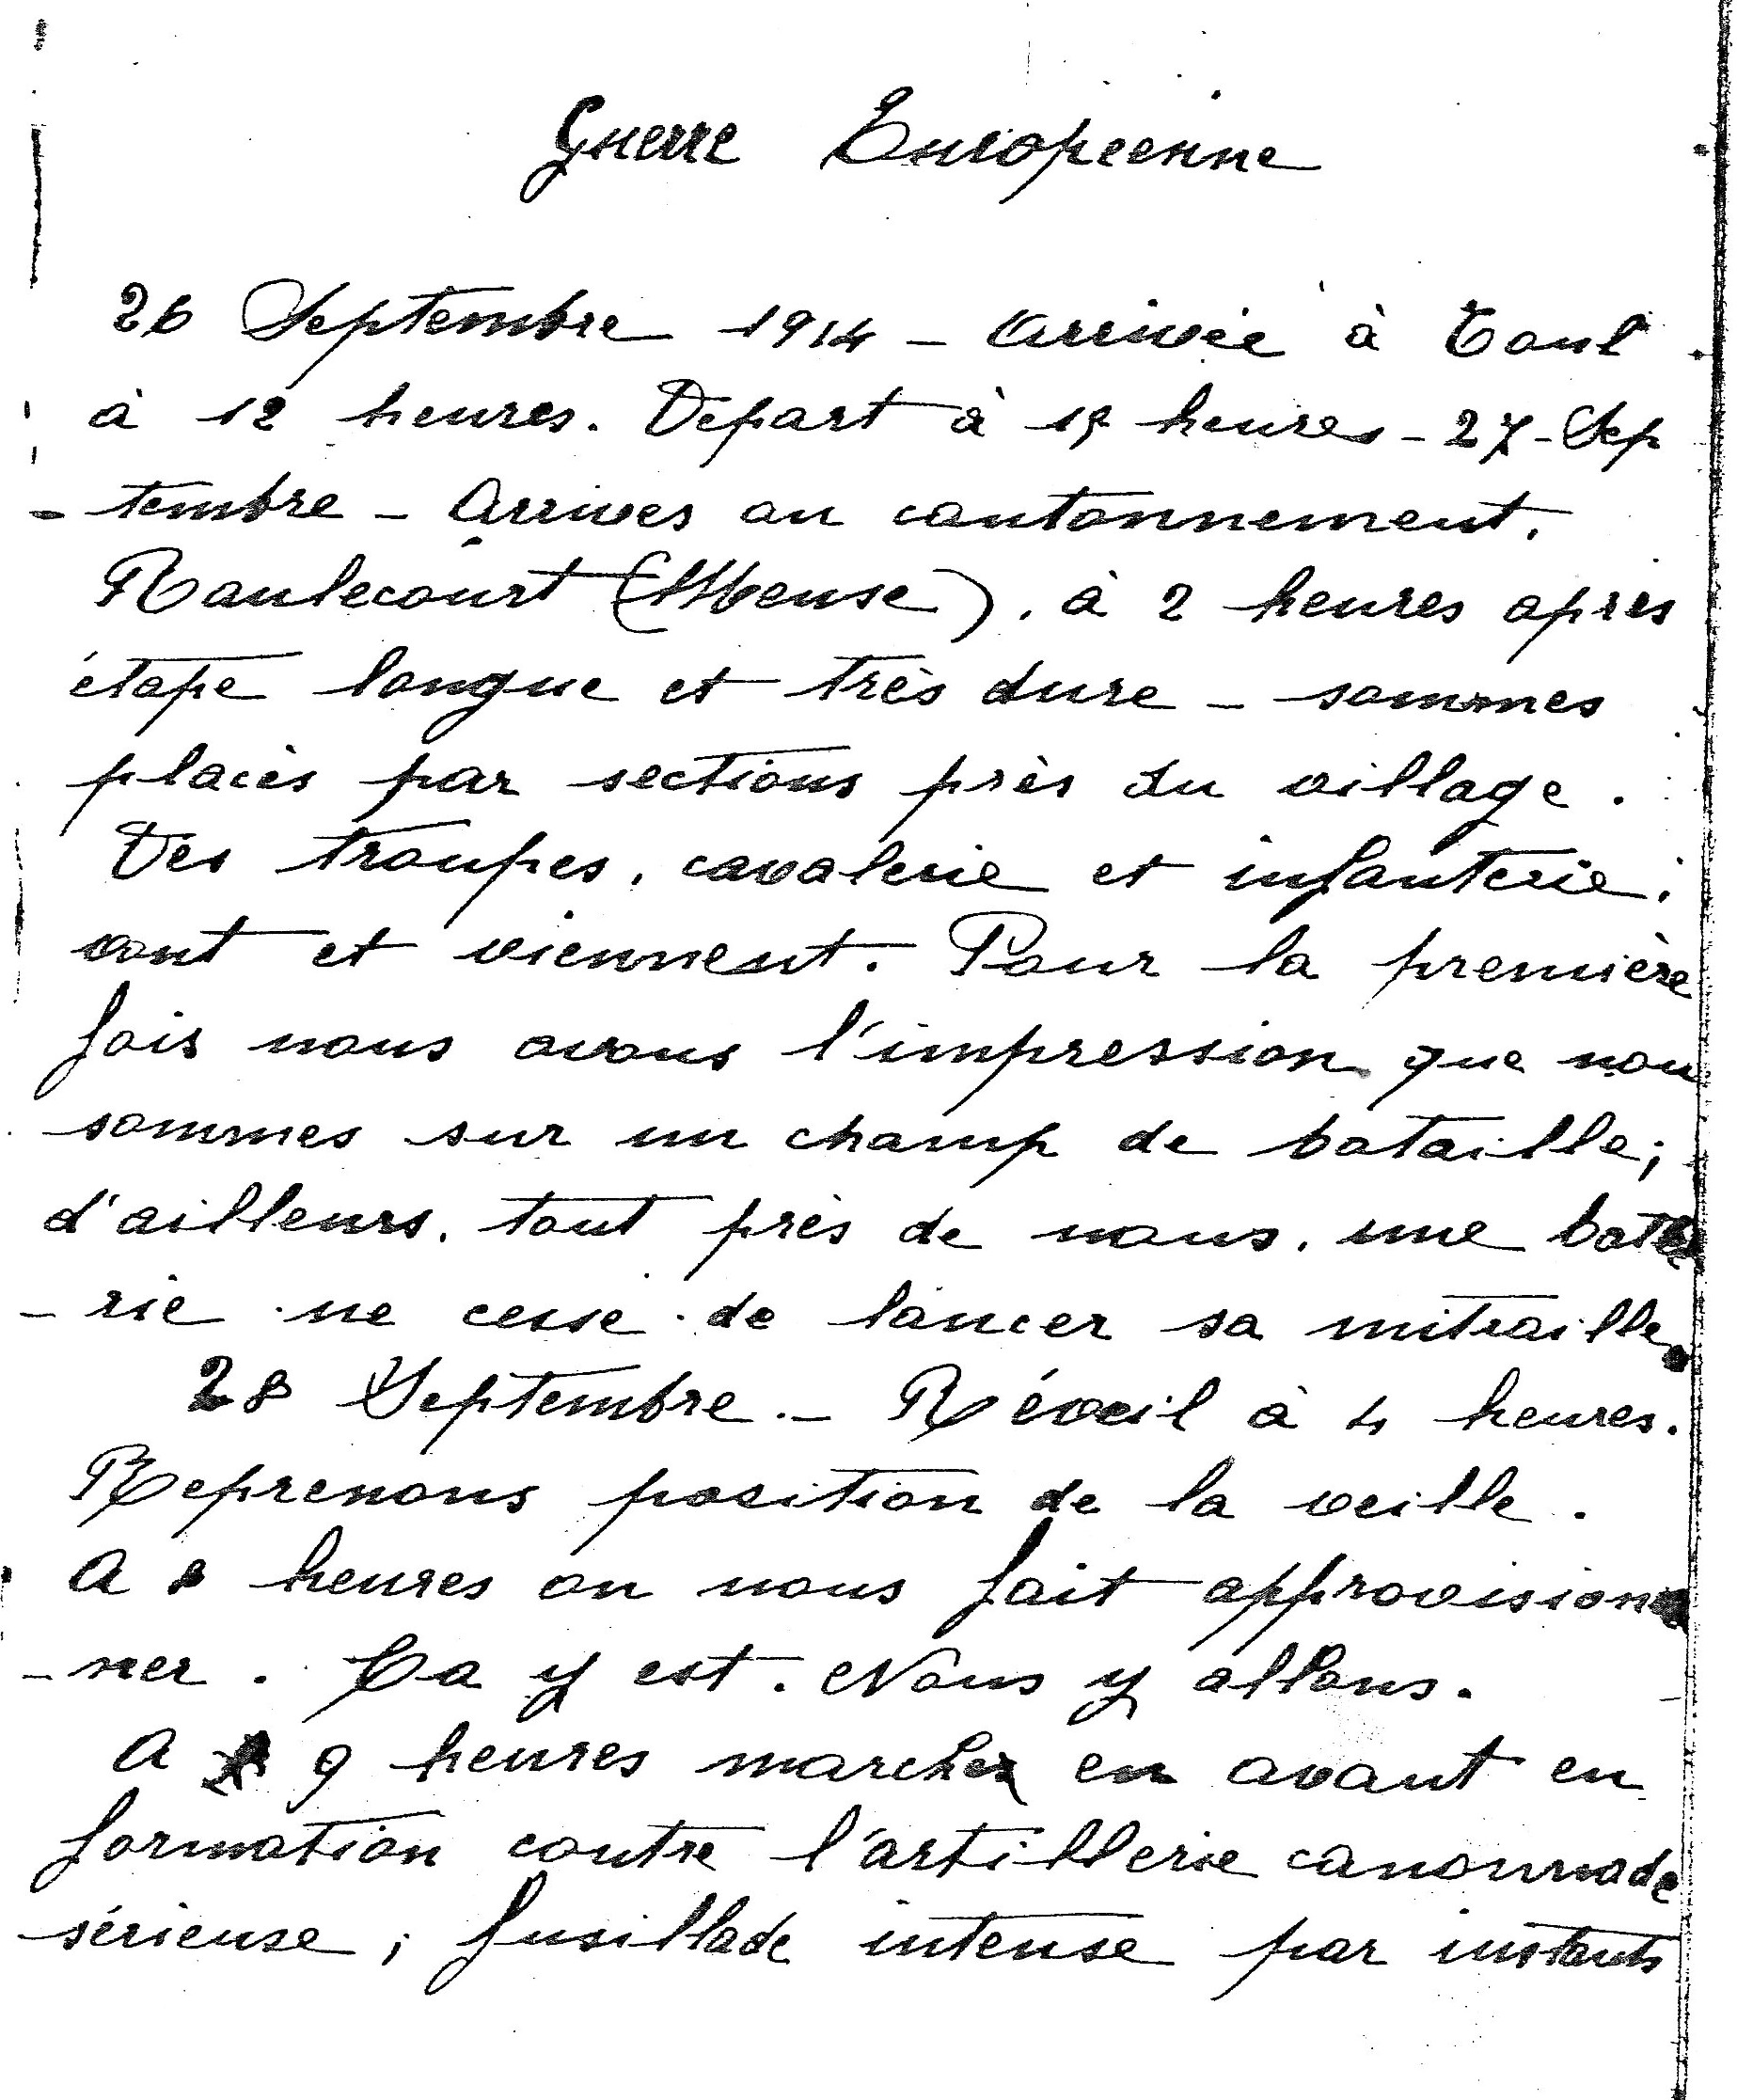 Guerre Européenne
26 Septembre 1914 - Arrivée à Toul
à 12 heures. Départ à heures - 27 - Sep
- tembre - Arrives au cantonnement.
Raulecourt (Meuse). à 2 heures après
étape longue et très dure - sommes
placés par sections près du village.
Des troupes, cavalerie et infanterie,
vont et viennent. Pour la première
fois nous avons l'impression que nou
sommes sur un champ de bataille ;
d'ailleurs, tout près de nous, une batte
- rie ne cesse de lancer sa mitraille.
28 Septembre. - Réveil à 4 heures.
Reprenons position de la veille.
A 8 heures on nous fait approvision
- ner. Ca y est. Nous y allons.
A 9 heures marcher en avant en
formation contre l'artillerie canonnade
sérieuse ; fusillade intense par instants